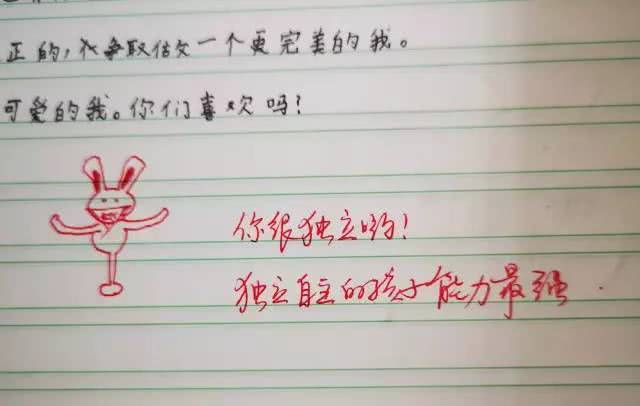 正的,我争取做一个更完美的我。
可爱的我。你们喜欢吗?
你很独立哟!
独立自主的孩子能力最强.